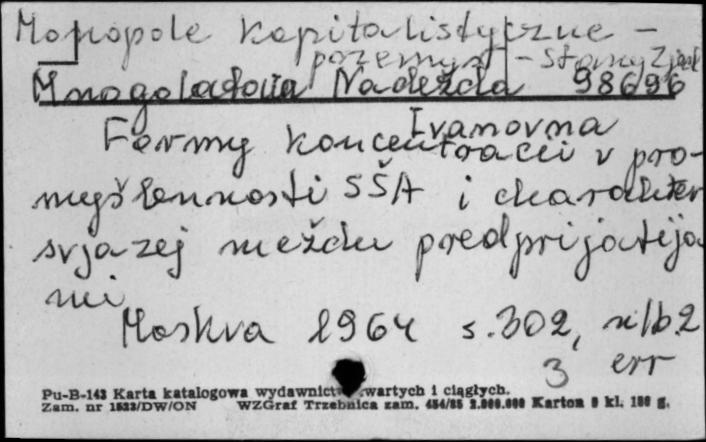 Monopole kapitalistyczne -
przemysł - Stany Zjedn
Mnogoladova Nadežda 98696
Ivanovna
Formy koncentracii v pro-
myšlennosti SŠA i charakter
svjazej meždu predprijatija
mi
Moskva 1964 s. 302, nlb. 2
3 err
Pu-B-143 Karta katalogowa wydawnict wartych i ciągłych.
Zam. nr 1533/DW/ON WZGraf Trzebnica zam. 454/85 2.000.000 Karton 0 kl. 180 g.